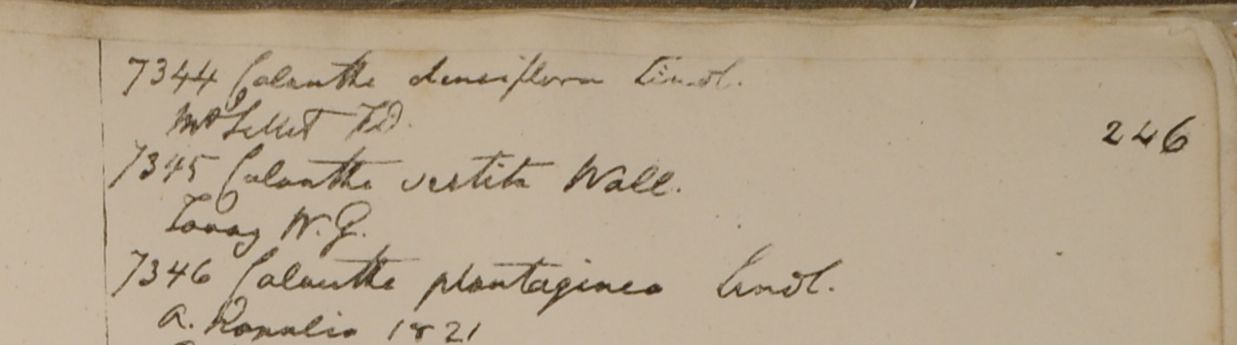 7344 Calanthe densiflora Lindl.
Mt Sillet F.D.
246
7345 Calanthe vestita Wall.
Tavoy W.G.
7346 Calanthe plantaginea Lindl.
a. Kamalia 1821